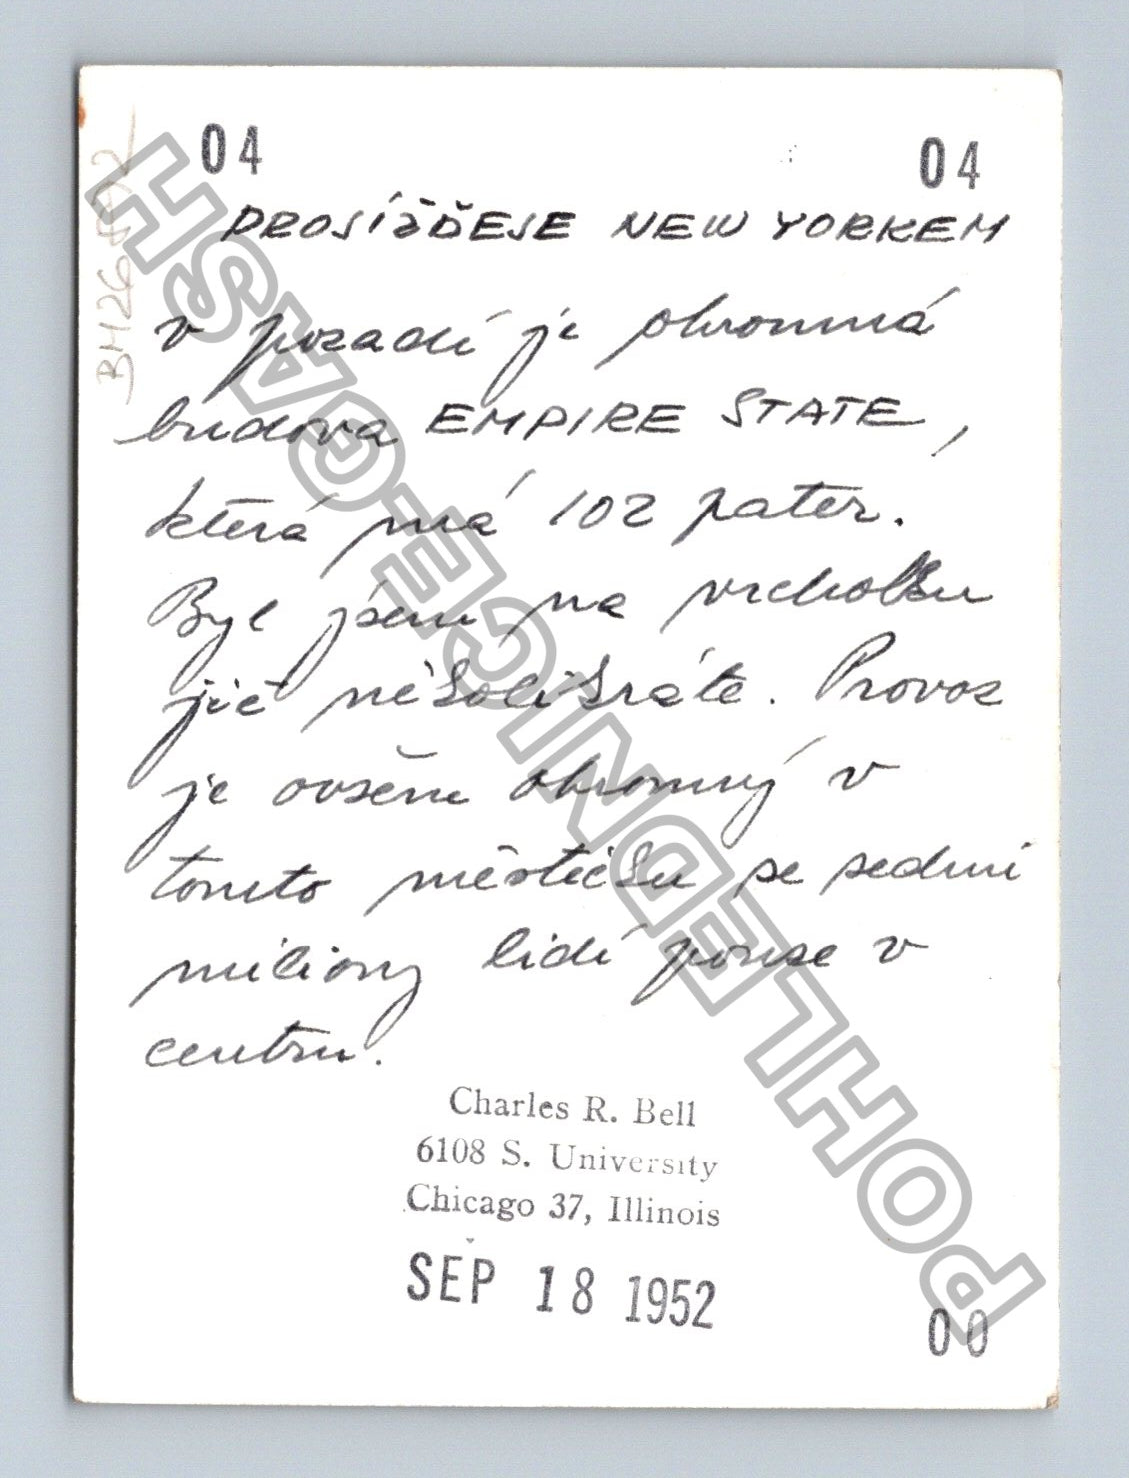 04 04
PROSÍŽĎESE NEW YORKEM
v pozadí je ohromná
budova EMPIRE STATE,
která má 102 pater.
Byl jsem na vrcholku
již několikráte. Provoz
je ovšem ohromný v
tomto městečku se sedmi
miliony lidí pouze v
centru.
Charles R. Bell
6108 S. University
Chicago 37, Illinois
SEP 18 1952
00
POHLEDNICE-GASH